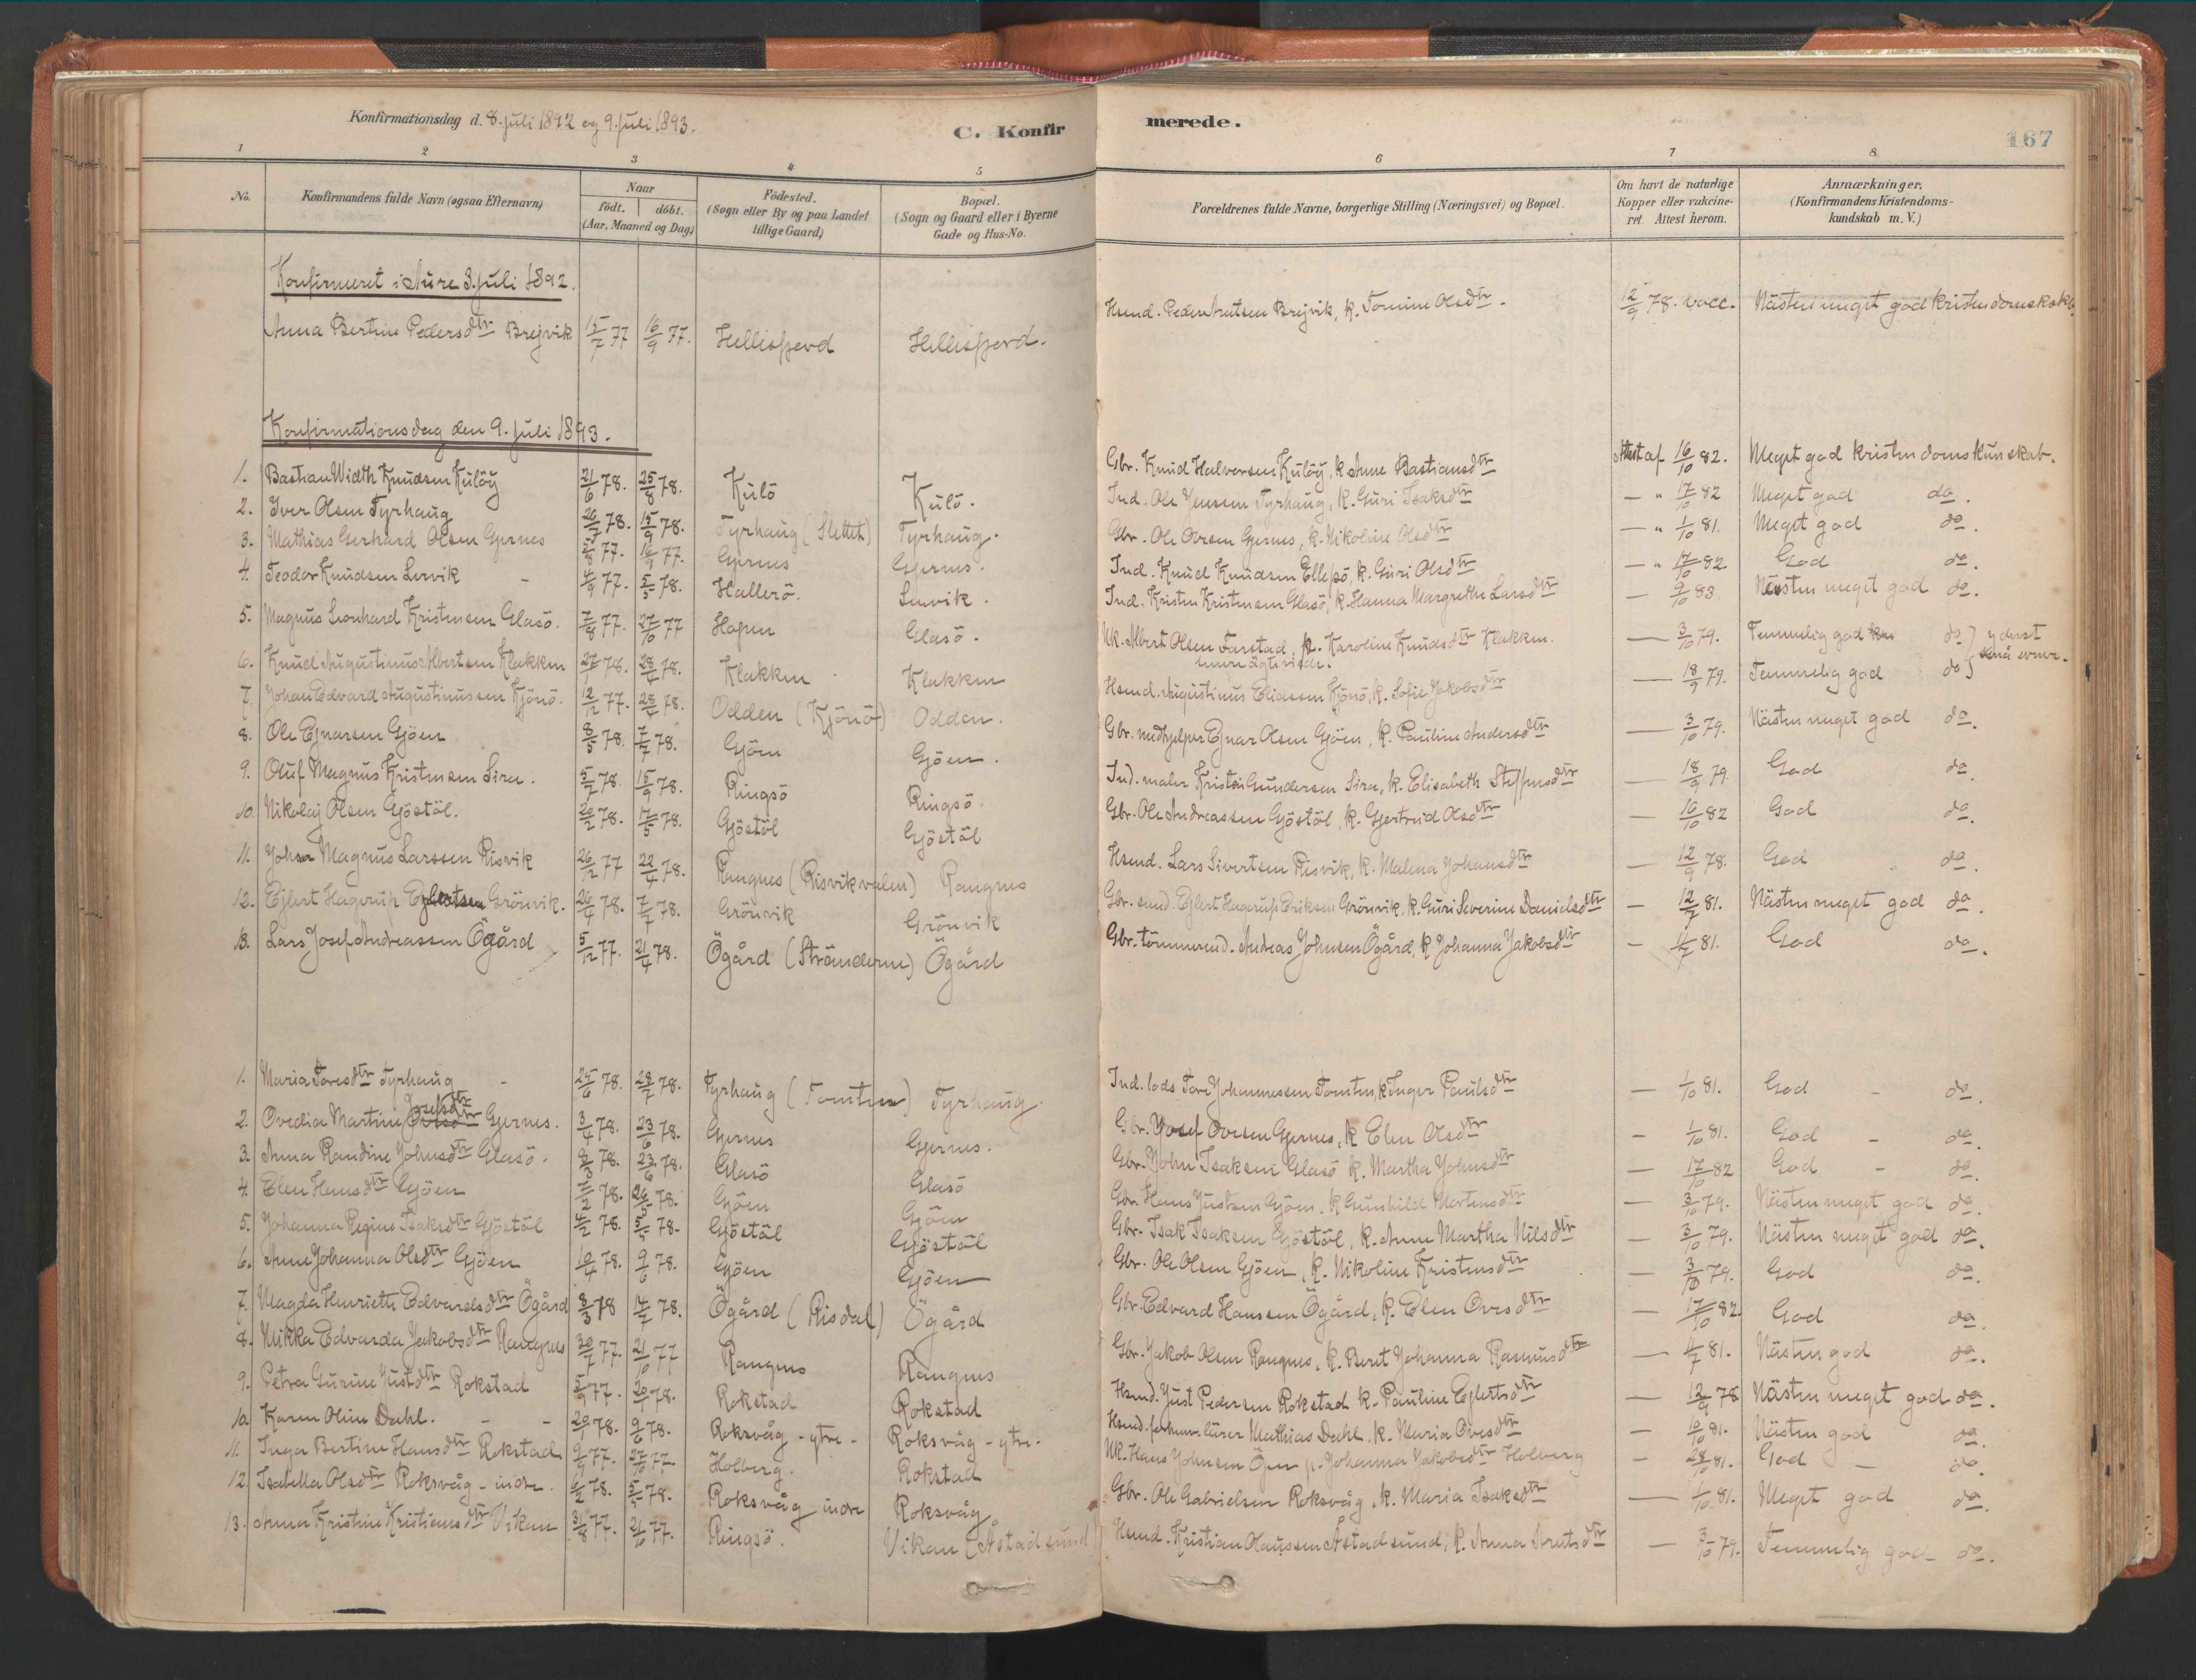 Konfirmationsdag d. 8. juli 1892 og 9. juli 1893.
C. Konfirmerede.
167
1 2 3 4 5 6 7 8
No.
Konfirmandens fulde Navn (ogsaa Efternavn)
Naar
födt. döbt.
(Aar, Maaned og Dag)
Födested.
(Sogn eller By og paa Landet
tillige Gaard)
Bopæl.
(Sogn og Gaard eller i Byerne
Gade og Hus-No.
Forældrenes fulde Navne, borgerlige Stilling (Næringsvei) og Bopæl.
Om havt de naturlige
Kopper eller vakcine-
ret. Attest herom.
Anmærkninger.
(Konfirmandens Kristendoms-
kundskab m. V.)
Konfirmeret i Aure 3. juli 1892.
Anna Bertine Pedersdtr Brejvik 15/7 77 16/9 77. Hellisfjord Hellisfjord. Hsmd. Peder Arntsen Brejvik, k. Tomine Olsdtr. 12/9 78. vacc. Nästen meget god kristendomskskb.
Konfirmationsdag den 9. juli 1893.
1. Bastian Width Knudsen Kulöy 21/6 78. 25/8 78. Kulö Kulö. Gbr. Knud Halvorsen Kulöy, k. Anne Bastiansdtr Attest af 16/10 82. Meget god kristendomskunskab.
2. Iver Olsen Tyrhaug 20/7 78. 15/9 78. Tyrhaug (Slettet) Tyrhaug. Ind. Ole Jensen Tyrhaug, k. Guri Isaksdtr — " 17/10 82 Meget god do.
3. Mathias Gerhard Olsen Gjernes 5/8 77. 16/9 77. Gjernes Gjernes. Gbr. Ole Ovesen Gjernes, k. Nikoline Olsdtr — " 1/10 81. Meget god do.
4. Teodor Knudsen Lervik - 4/9 77. 5/5 78. Hallerö. Lervik. Ind. Knud Knudsen Ellefsö, k. Guri Olsdtr — " 17/10 82 God do.
5. Magnus Leonhard Kristensen Glasö. 7/8 77. 27/10 77 Hopen Glasö. Ind. Kristen Kristensen Glasö, k. Hanna Margrethe Larsdtr — 9/10 83. Nästen meget god do.
6. Knud Augustinus Albertsen Klakken 27/1 78. 28/4 78. Klakken Klakken Uk. Albert Olsen Farstad, p. Karoline Knudsdtr Klakken. — 3/10 79. Temmelig god do } yderst
små evner.
7. Johan Edvard Augustinussen Kjönö. 12/12 77. 25/4 78. Odden (Kjönö) Odden. Hsmd. Augustinus Eliassen Kjönö, k. Sofie Jakobsdtr — 18/9 79. Temmelig god do }
8. Ole Ejnarsen Gjöen 8/5 78. 7/7 78. Gjöen Gjöen. Gbr. medhjelper Ejnar Olsen Gjöen, k. Pauline Andersdtr — 3/10 79. Nästen meget god do.
9. Oluf Magnus Kristensen Sira. 5/7 78. 15/9 78. Ringsö Ringsö. Ind. maler Kristen Gundersen Sira, k. Elisabeth Steffensdtr — 18/9 79. God do.
10. Nikolaj Olsen Gjöstöl. 20/2 78. 17/5 78. Gjöstöl Gjöstöl Gbr. Ole Andreassen Gjöstöl, k. Gjertrud Olsdtr — 16/10 82 God do.
11. Johan Magnus Larssen Risvik 26/12 77 22/4 78. Rangnes (Risvikvalen) Rangnes Hsmd. Lars Sivertsen Risvik, k. Malena Johansdtr — 12/9 78. God do.
12. Ejlert Hagerup Ejlertsen Grönvik. 26/4 78. 7/7 78. Grönvik Grönvik Gbr. smed. Ejlert Hagerup Eriksen Grönvik, k. Guri Severine Danielsdtr — 12/7 81. Nästen meget god do.
13. Lars Josef Andreassen Ögård 5/12 77. 21/4 78. Ögård (Stränderne) Ögård Gbr. tömmermd. Andreas Johnsen Ögård, k. Johanna Jakobsdtr — 4/7 81. God do.
1. Maria Toresdtr Tyrhaug - 25/6 78. 28/7 78. Tyrhaug (Tomten) Tyrhaug. Ind. lods Tore Johannessen Tomten, k. Inger Paulsdtr — 1/10 81. God - do.
2. Ovedia Martine Josefsdtr Gjernes. 3/4 78. 23/6 78. Gjernes Gjernes. Gbr. Josef Ovesen Gjernes, k. Elen Olsdtr — 1/10 81. God - do.
3. Anna Randine Johnsdtr Glasö. 8/3 78. 23/6 78. Glasö Glasö Gbr. John Isaksen Glasö k. Martha Johnsdtr — 17/10 82 God - do.
4. Elen Hansdtr Gjöen 11/2 78. 26/5 78. Gjöen Gjöen Gbr. Hans Justsen Gjöen, k. Gunhild Mortensdtr — 3/10 79. Nästen meget god do.
5. Johanna Regine Isaksdtr Gjöstöl 4/2 78. 5/5 78. Gjöstöl Gjöstöl Gbr. Isak Isaksen Gjöstöl, k. Anne Martha Nilsdtr — 3/10 79. Nästen meget god do.
6. Anne Johanna Olsdtr Gjöen 10/4 78. 9/6 78. Gjöen Gjöen Gbr. Ole Olsen Gjöen, k. Nikoline Kristensdtr — 3/10 79. God do.
7. Magda Henriette Edvardsdtr Ögård 8/3 78 14/7 78. Ögård (Risdal) Ögård Gbr. Edvard Hanssen Ögård, k. Elen Ovesdtr — 17/10 82. God do.
8. Mikka Edvarda Jakobsdtr Rangnes 30/7 77. 21/10 77 Rangnes Rangnes Gbr. Jakob Olsen Rangnes, k. Beret Johanna Rasmusdtr — 4/7 81. Nästen god do.
9. Petra Gurine Justdtr Rokstad 5/9 77. 20/1 78. Rokstad Rokstad Hsmd. Just Pedersen Rokstad k. Pauline Ejlertsdtr — 12/9 78 Nästen meget god do.
10. Karen Oline Dahl. - - 20/1 78. 9/6 78. Roksvåg - ytre - Roksvåg - ytr. Hsmd. forhenv. lärer Mathias Dahl, k. Maria Ovesdtr — 10/10 81. Nästen god do.
11. Inga Bertine Hansdtr Rokstad 9/9 77. 27/10 77 Holberg. Rokstad Uk. Hans Johnsen Ören p. Johanna Jakobsdtr Holberg — 28/10 81. God - do.
12. Isabella Olsdtr Roksvåg - indre. 6/2 78. 5/5 78. Roksvåg indre Roksvåg Gbr. Ole Gabrielsen Roksvåg, k. Maria Isaksdtr — 1/10 81. Meget god do.
13. Anna Kristine Kristiansdtr Vikan 31/8 77. 21/10 77. Ringsö. Vikan (Åstadsund) Hsmd. Kristian Olaussen Åstadsund, k. Anna Arntsdtr — 3/10 79. Temmelig god - do.